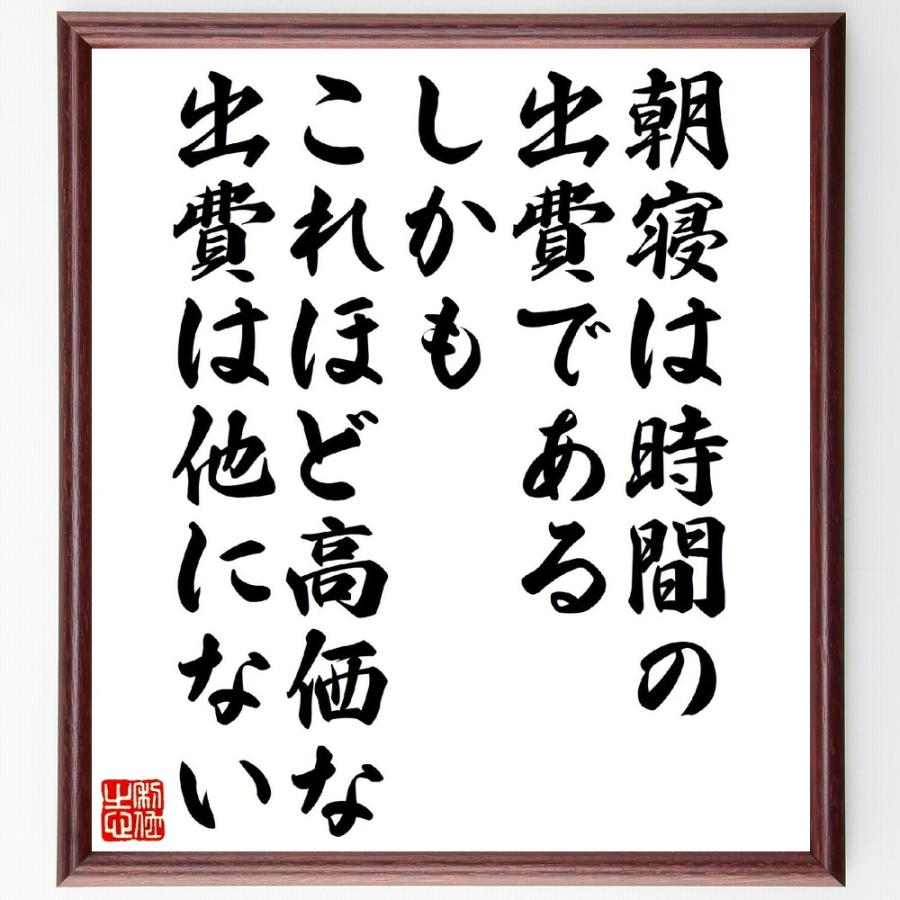 朝寝は時間の
出費である
しかも
これほど高価な
出費は他にない